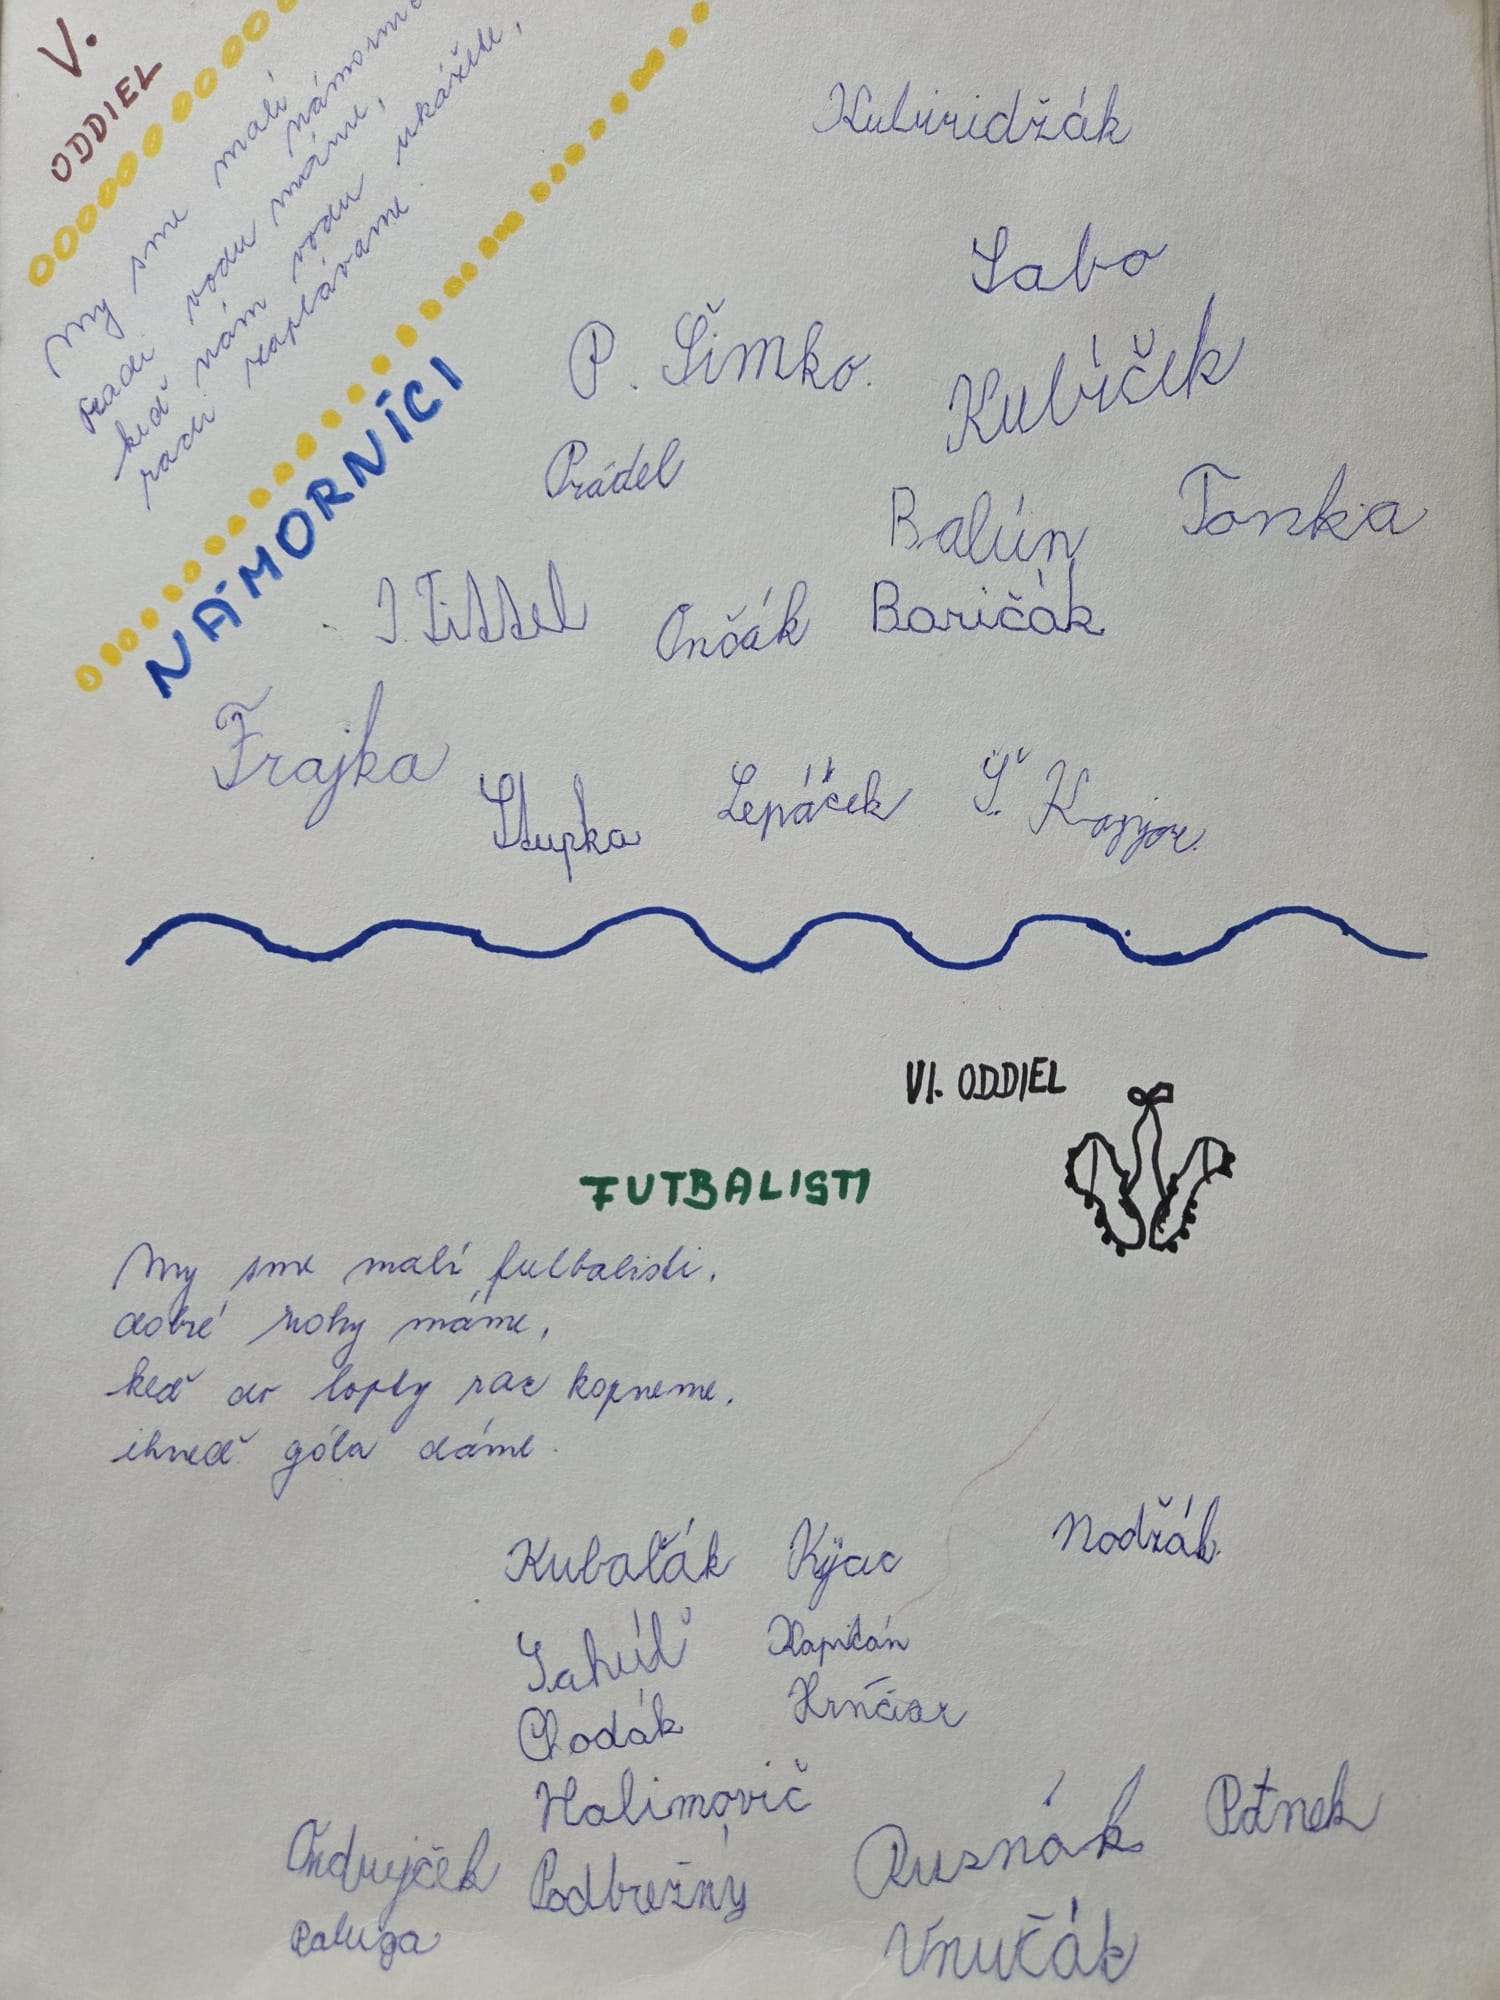 V.
ODDIEL
My sme malí námorníci
radi vodu máme,
keď nám vodu ukážete,
radi zaplávame.
NÁMORNÍCI
Kuburidžák
Sabo
P. Šimko.
Kubíček
Prádel
Balún
Tonka
J. Tittel
Ončák
Boričák
Frajka
Stupka
Lepáček
Š.
VI. ODDIEL
FUTBALISTI
My sme malí futbalisti,
dobré nohy máme,
keď do lopty raz kopneme,
ihneď góla dáme.
Kubaľák
Kýac
Nodžák
Sahúľ
Kapitán
Chodák
Hrnčiar
Halimovič
Ondrejček
Podbrežný
Rusnák
Paľnek
Paluga
Vnučák